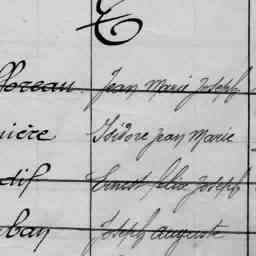 Moreau Jean Marie Joseph
nière Isidore Jean Marie
dil Ernest Félix Joseph
ban Joseph Auguste